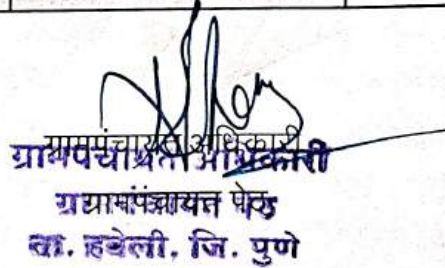 ग्रामपंचायत अधिकारी
ग्रामपंचायत अधिकारी
ग्रामपंचायत पेठ
ता. हवेली, जि. पुणे